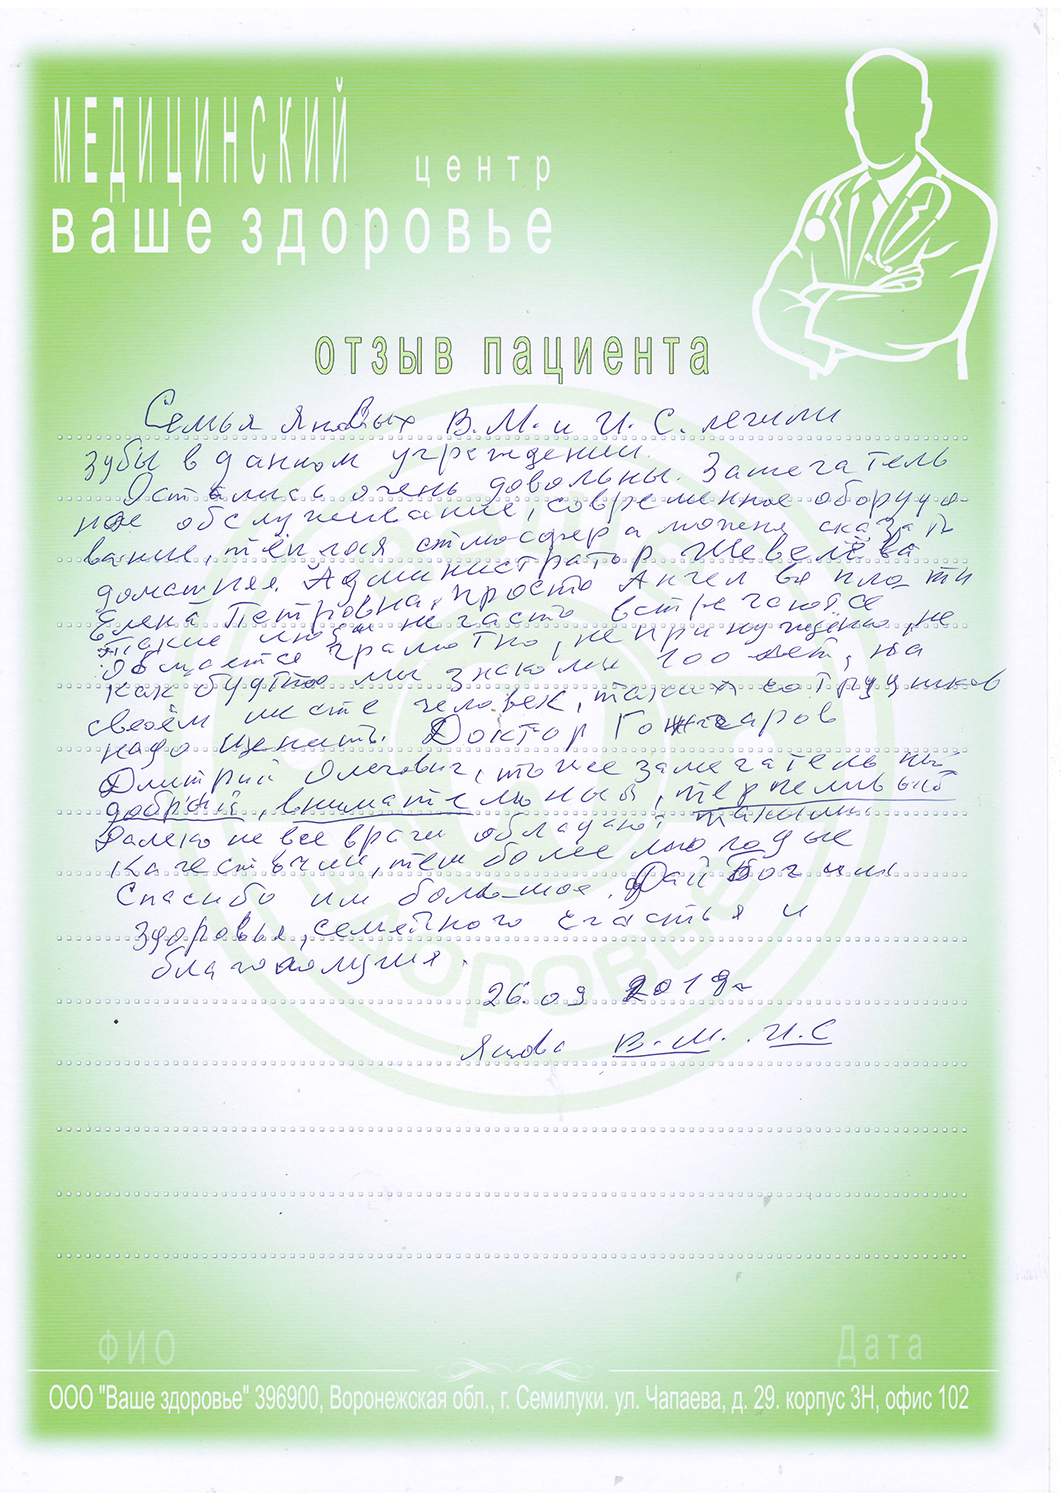 МЕДИЦИНСКИЙ центр
ваше здоровье
отзыв пациента
Семья Яковых В.М. и И.С. лечили
зубы в данном учреждении.
Остались очень довольны. Замечатель
ное обслуживание, современное оборудо-
вание, тёплая атмосфера можно сказать
домашняя. Администратор Шевелёва
Елена Петровна, просто Ангел во плоти
Такие люди не часто встречаются
Общается грамотно, непринуждённо, не
как будто мы знакомы 100 лет, на
своём месте человек, таких сотрудников
надо ценить. Доктор Гончаров
Дмитрий Олегович, тоже замечательный
добрый, внимательный, терпеливый
Далеко не все врачи обладают такими
качествами, тем более молодые
Спасибо им большое. Дай Бог им
здоровья, семейного счастья и
благополучия.
26.09 2019г
В.М. И.С
ЗДОРОВЬЕ
ФИО Дата
ООО "Ваше здоровье" 396900, Воронежская обл., г. Семилуки. ул. Чапаева, д. 29. корпус 3Н, офис 102